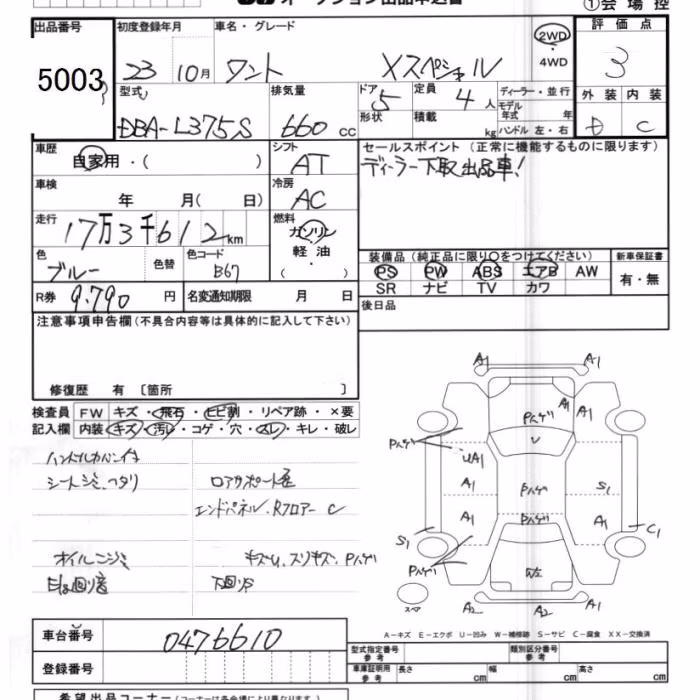 出品番号 初度登録年月 車名・グレード ①会場控
5003 23 10月 タント Xスペシャル 2WD ・ 4WD 評価点 3
型式 排気量 ドア 5 定員 4人 ディーラー・並行
DBA-L375S 660cc 形状 積載 kg モデル年式 年 ハンドル 左・右
外装 内装
D C
車歴 シフト セールスポイント(正常に機能するものに限ります)
自家用・( ) AT ディーラー下取出品車!
車検 冷房
年 月( 日) AC
走行 燃料
17万3千612km ガソリン
軽油
( )
色 色替 色コード
ブルー B67
装備品(純正品に限り○をつけてください) 新車保証書
PS PW ABS エアB AW 有・無
SR ナビ TV カワ
R券 9.790円 名変通知期限 月 日 後日品
注意事項申告欄(不具合内容等は具体的に記入して下さい)
修復歴 有 〔箇所 〕
検査員 FW キズ・飛石・ヒビ割・リペア跡・×要
記入欄 内装 キズ・汚レ・コゲ・穴・スレ・キレ・破レ
シートシミ、ヘタリ
エンドパネル、Rフロアー C
オイルニジミ キズU、スリキズ、Pハゲ
下回りサビ
A1 A1
Pハゲ A1 A1
Pハゲ U
UA1
A1 Pハゲ S1
A1 Pハゲ A1
S1 C1
Pハゲ
スペア A2 A2 A1
A-キズ E-エクボ U-凹み W-補修跡 S-サビ C-腐食 XX-交換済
車台番号 0476610
型式指定番号 参考 類別区分番号 参考
登録番号 車庫証明用 参考 長さ cm 幅 cm 高さ cm
希望出品コーナー